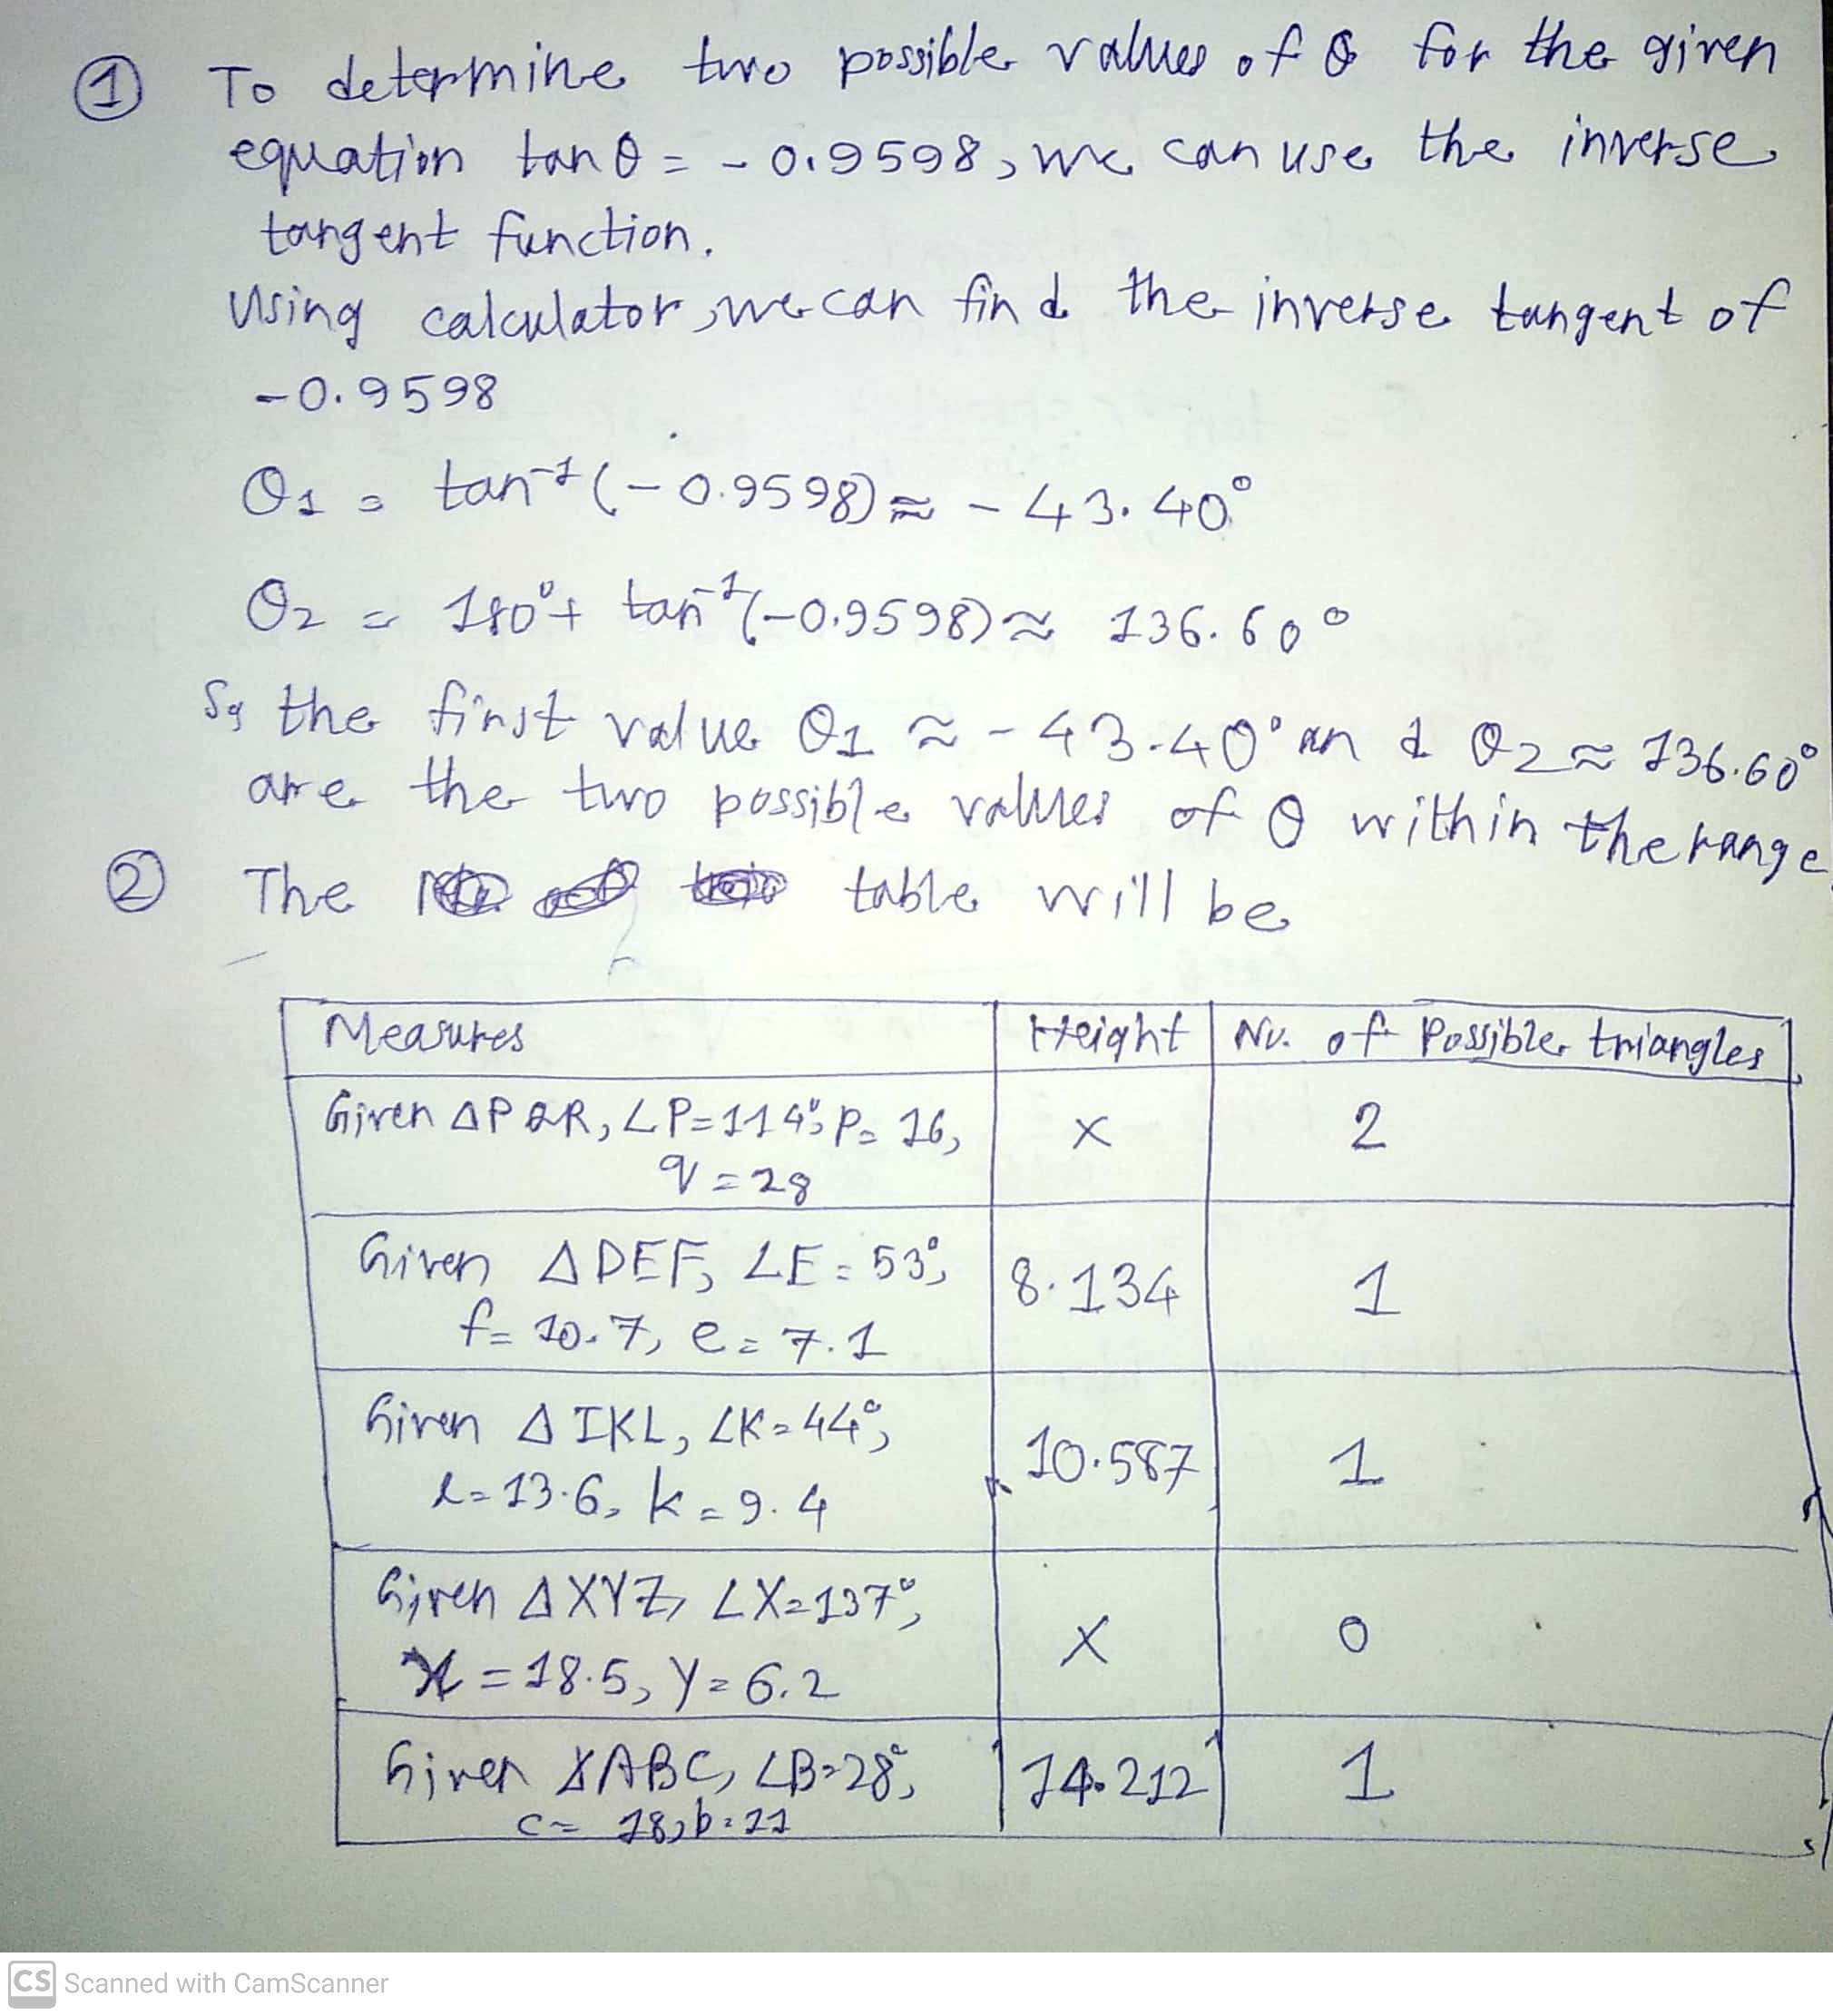 ① To determine two possible values of θ for the given
equation tan θ = - 0.9598, we can use the inverse
tangent function.
Using calculator, we can find the inverse tangent of
-0.9598
θ1 = tan⁻¹(-0.9598) ≈ -43.40°
θ2 = 180° + tan⁻¹(-0.9598) ≈ 136.60°
So the first value θ1 ≈ -43.40° and θ2 ≈ 136.60°
are the two possible values of θ within the range
② The table will be
Measures Height No. of Possible triangles
Given △PQR, ∠P=114°, P= 16, x 2
q=28
Given △DEF, ∠E=53°, 8.134 1
f= 10.7, e=7.1
Given △IKL, ∠K=44°, 10.587 1
l=13.6, k=9.4
Given △XYZ, ∠X=137°, x 0
x=18.5, y=6.2
Given △ABC, ∠B=28°, 14.212 1
c= 18, b=11
CS Scanned with CamScanner